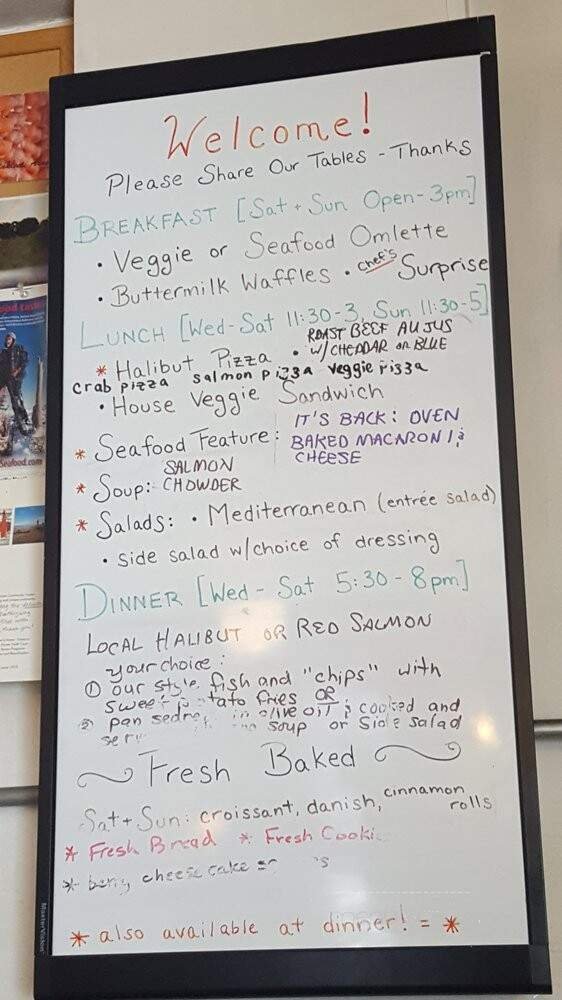 Welcome!
Please Share Our Tables - Thanks
BREAKFAST [Sat + Sun Open - 3pm]
• Veggie or Seafood Omlette
• Buttermilk Waffles • chef's Surprise
LUNCH [Wed - Sat 11:30 - 3, Sun 11:30 - 5]
* Halibut Pizza • ROAST BEEF AU JUS
W/ CHEDDAR or BLUE
crab pizza salmon pizza veggie pizza
• House Veggie Sandwich
* Seafood Feature: IT'S BACK: OVEN
BAKED MACARONI &
CHEESE
* Soup: SALMON
CHOWDER
* Salads: • Mediterranean (entrée salad)
• side salad w/choice of dressing
DINNER [Wed - Sat 5:30 - 8pm]
LOCAL HALIBUT OR RED SALMON
your choice:
① our style fish and "chips" with
sweet potato fries OR
② pan in olive oil & cooked and
soup or side salad
Fresh Baked
Sat + Sun: croissant, danish, cinnamon
rolls
* Fresh Bread * Fresh
* cheese cake
* also available at dinner! = *
MasterVision
Seafood.com